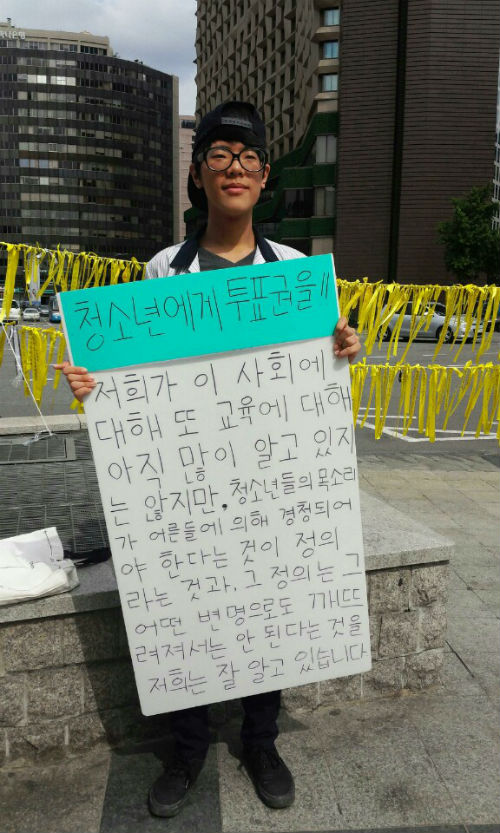 청소년에게 투표권을!!
저희가 이 사회에
대해 또 교육에 대해
아직 많이 알고 있지
는 않지만, 청소년들의 목소리
가 어른들에 의해 경청되어
야 한다는 것이 정의
라는 것과, 그 정의는 그
어떤 변명으로도 깨뜨
려져서는 안 된다는 것을
저희는 잘 알고 있습니다